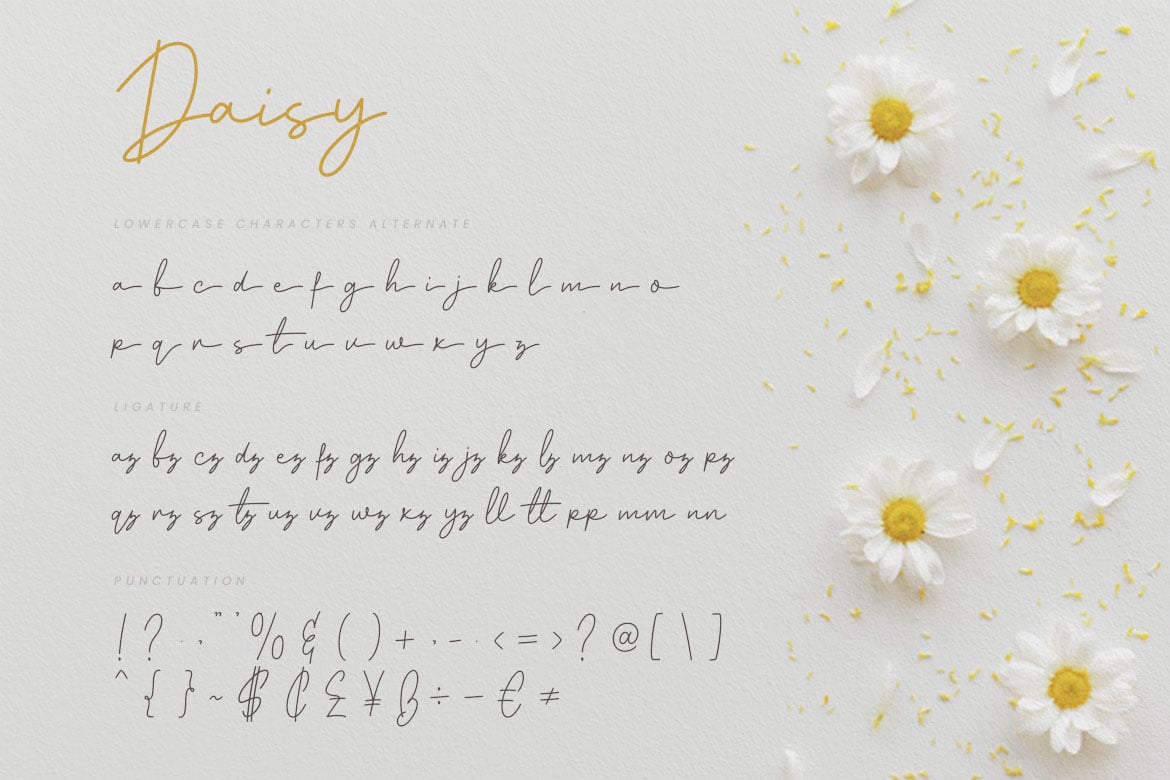 Daisy
LOWERCASE CHARACTERS ALTERNATE
a b c d e f g h i j k l m n o
p q r s t u v w x y z
LIGATURE
az bz cz dz ez fz gz hz iz jz kz lz mz nz oz pz
qz rz sz tz uz vz wz xz yz ll tt pp mm nn
PUNCTUATION
! ? . , " ' % & ( ) + , - . < = > ? @ [ \ ]
^ { } ~ $ ₵ £ ¥ ß ÷ − € ≠